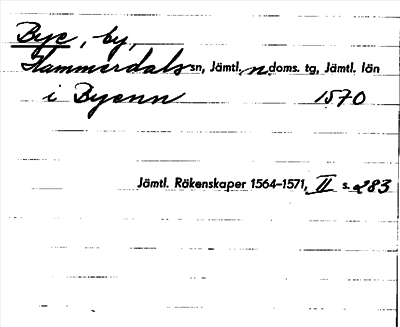 Bye, by,
Hammerdals sn, Jämtl. n. doms. tg, Jämtl. län
i Byenn 1570
Jämtl. Räkenskaper 1564–1571, II s. 283